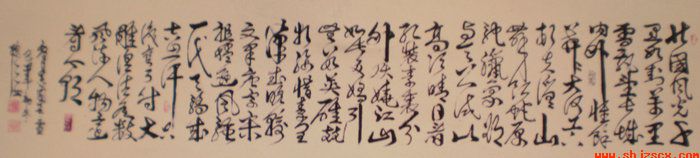 北國風光千
里冰封万里
雪飘望长城
内外惟余
莽莽大河上下
顿失滔滔山
舞银蛇原
驰蜡象欲
与天公试比
高须晴日看
红装素裹分
外妖娆江山
如此多娇引
无数英雄竞
折腰惜秦皇
汉武略输
文采唐宗宋
祖稍逊风骚
一代天骄成
吉思汗只
识弯弓射大
雕俱往矣数
风流人物还
看今朝
www.shjzscx.com